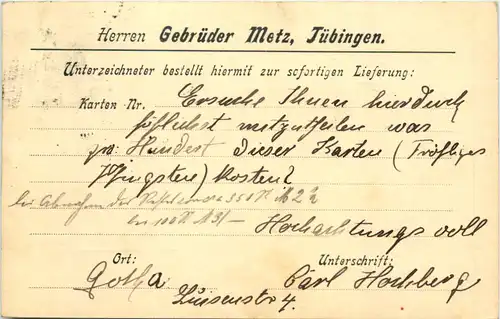 Herren Gebrüder Metz, Tübingen.
Unterzeichneter bestellt hiermit zur sofortigen Lieferung:
Karten Nr. Ersuche Ihnen hierduch
höflichst mitzutheilen was
pr: Hundert dieser Karten (
Pfingsten) kosten?
bei Abnahme der 350
100
Hochachtungsvoll
Ort: Unterschrift:
Gotha Carl Hochberg
Luisenstr 4.